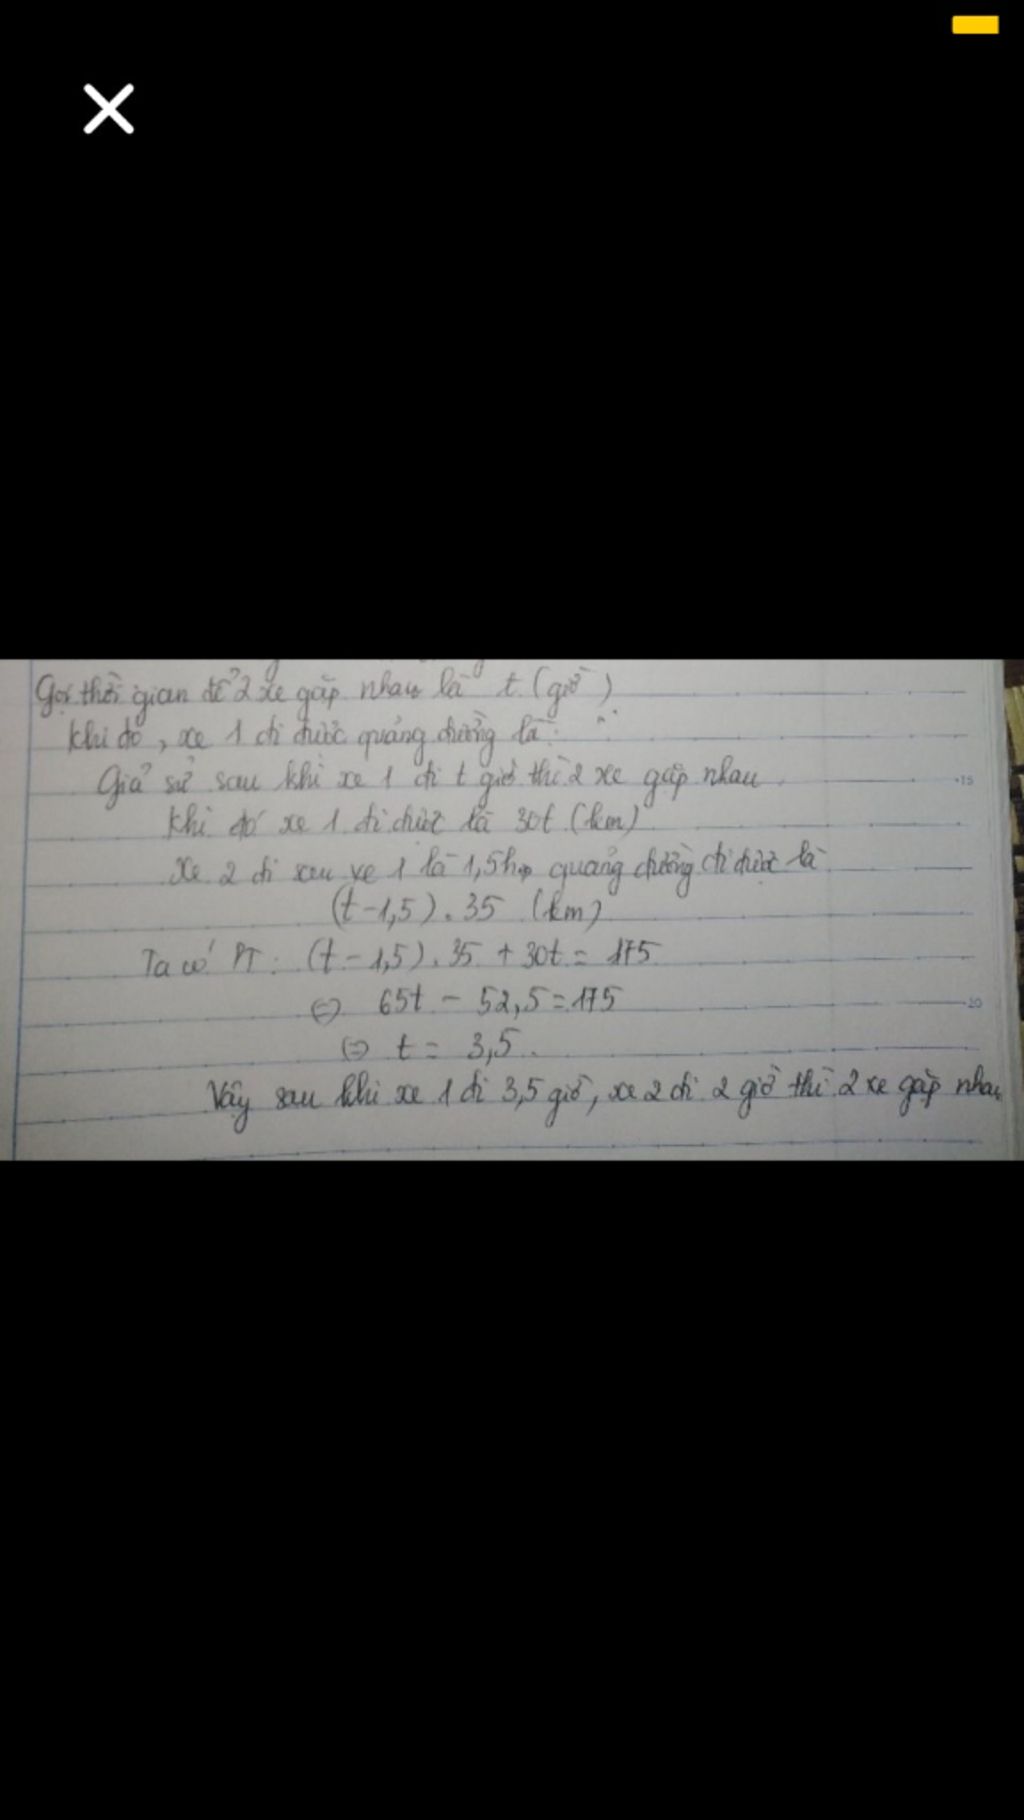 Gọi thời gian để 2 xe gặp nhau là t (giờ)
Khi đó, xe 1 đi được quảng đường là:
Giả sử sau khi xe 1 đi t giờ thì 2 xe gặp nhau
Khi đó xe 1 đi được là 30t (km)
Xe 2 đi sau xe 1 là 1,5h quảng đường đi được là
(t-1,5).35 (km)
Ta có PT: (t-1,5).35 + 30t = 175
⇔ 65t - 52,5 = 175
⇔ t = 3,5.
Vậy sau khi xe 1 đi 3,5 giờ, xe 2 đi 2 giờ thì 2 xe gặp nhau